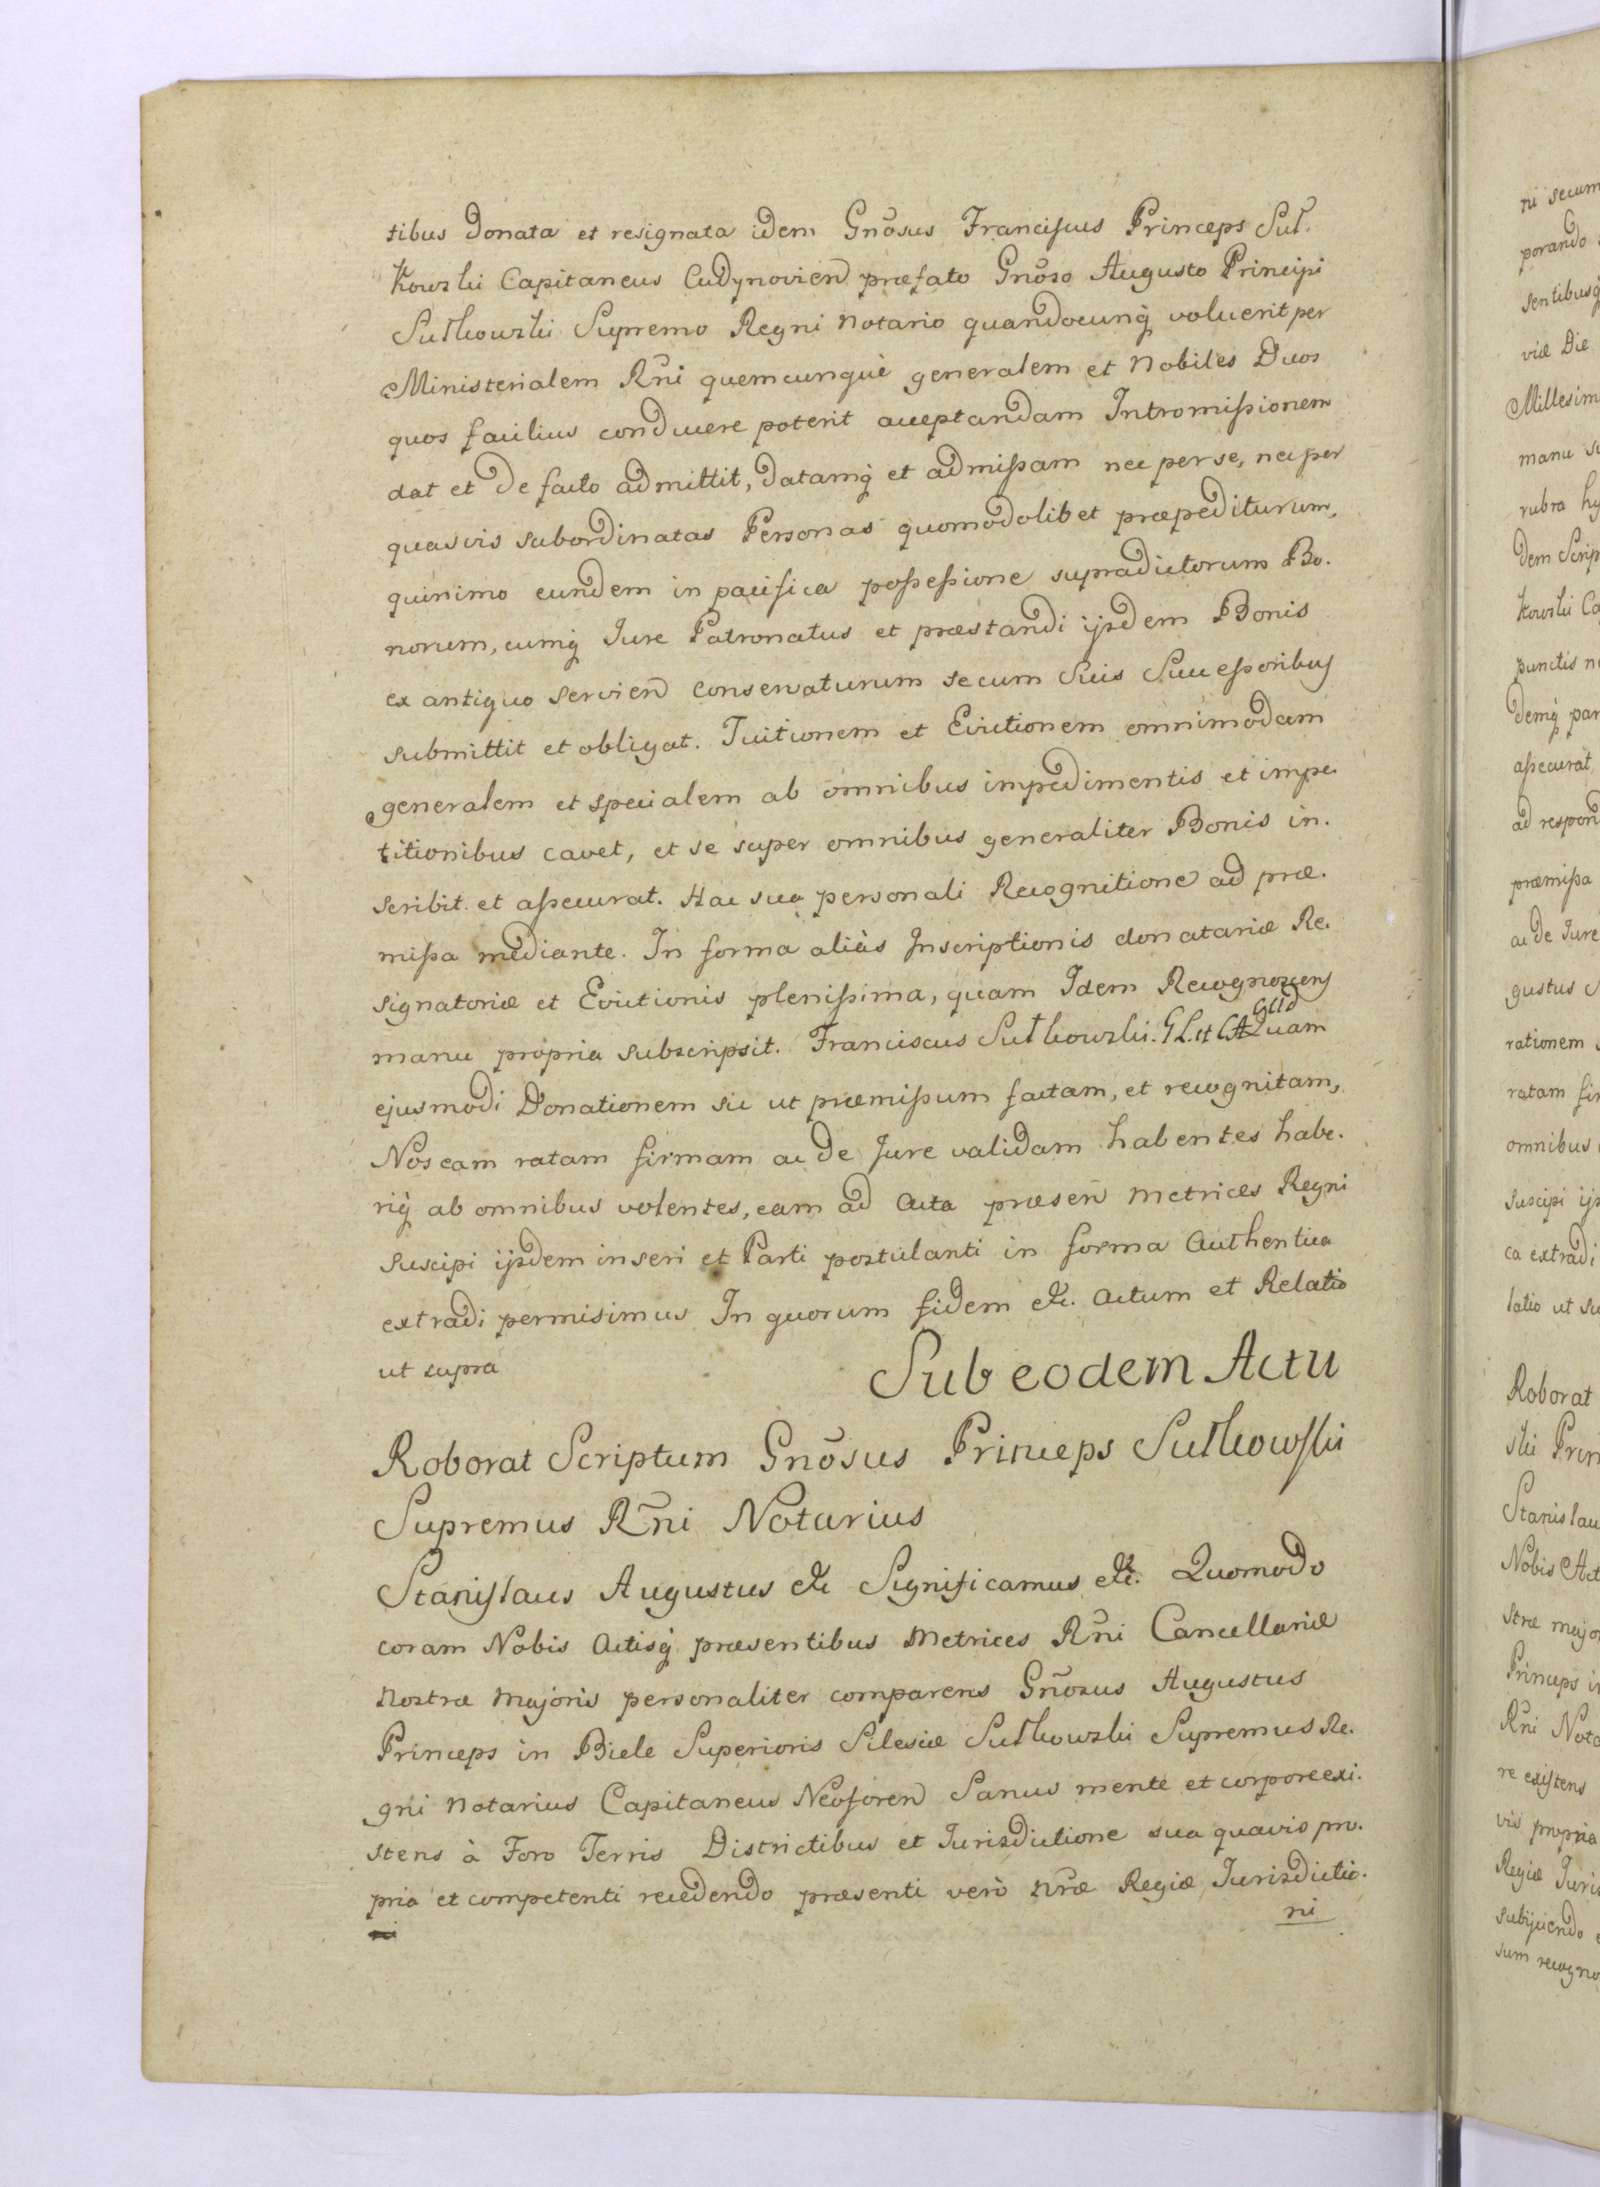 tibus Donata et resignata idem Gnōsus Franciscus Princeps Suł.
kowski Capitaneus Cudynovien præfato Gnōso Augusto Principi
Sułkowski Supremo Regni Notario quandocunq́ voluerit per
Ministerialem Rñi quemcunquè generalem et Nobiles Duos
quos facilius conducere poterit acceptandam Intromissionem
dat et de facto admittit, datamq́ et admissam nec per se, nec per
quasvis subordinatas Personas quomodolibet præpediturum,
quinimo eundem in pacifica possessione supradictorum Bo.
norum, cumq́ Jure Patronatus et præstandi ijsdem Bonis
ex antiquo servien conservaturum secum Suis Successoribus
submittit et obligat. Tuitionem et Evictionem omnimodam
generalem et specialem ab omnibus impedimentis et impe.
titionibus cavet, et se super omnibus generaliter Bonis in.
scribit et assecurat. Hac sua personali Recognitione ad præ.
missa mediante. In forma aliàs Inscriptionis donatariæ Re.
signatoriæ et Evictionis plenissima, quam Idem Recognoscens
manu propria subscripsit. Franciscus Sułkowski. G L. et Quam
ejusmodi Donationem sic ut præmissum factam, et recognitam,
Nos eam ratam firmam ac de Jure validam habentes habe.
riq́ ab omnibus volentes, eam ad Acta præsen Metrices Regni
suscipi ijsdem inseri et Parti postulanti in forma Authentica
extradi permisimus In quorum fidem etc. Actum et Relatio
ut supra
Sub eodem Actu
Roborat Scriptum Gnōsus Princeps Sułkowski
Supremus Rñi Notarius
Stanislaus Augustus etc Significamus etc. Quomodo
coram Nobis Actisq́ præsentibus Metrices Rñi Cancellariæ
Nostræ Majoris personaliter comparens Gnōsus Augustus
Princeps in Biele Superioris Silesiæ Sułkowski Supremus Re.
gni Notarius Capitaneus Neoforen Sanus mente et corpore exi.
stens à Foro Terris Districtibus et Jurisdictione sua quavis pro.
pria et competenti recedendo præsenti verò nr̃æ Regiæ Jurisdictio.
ni